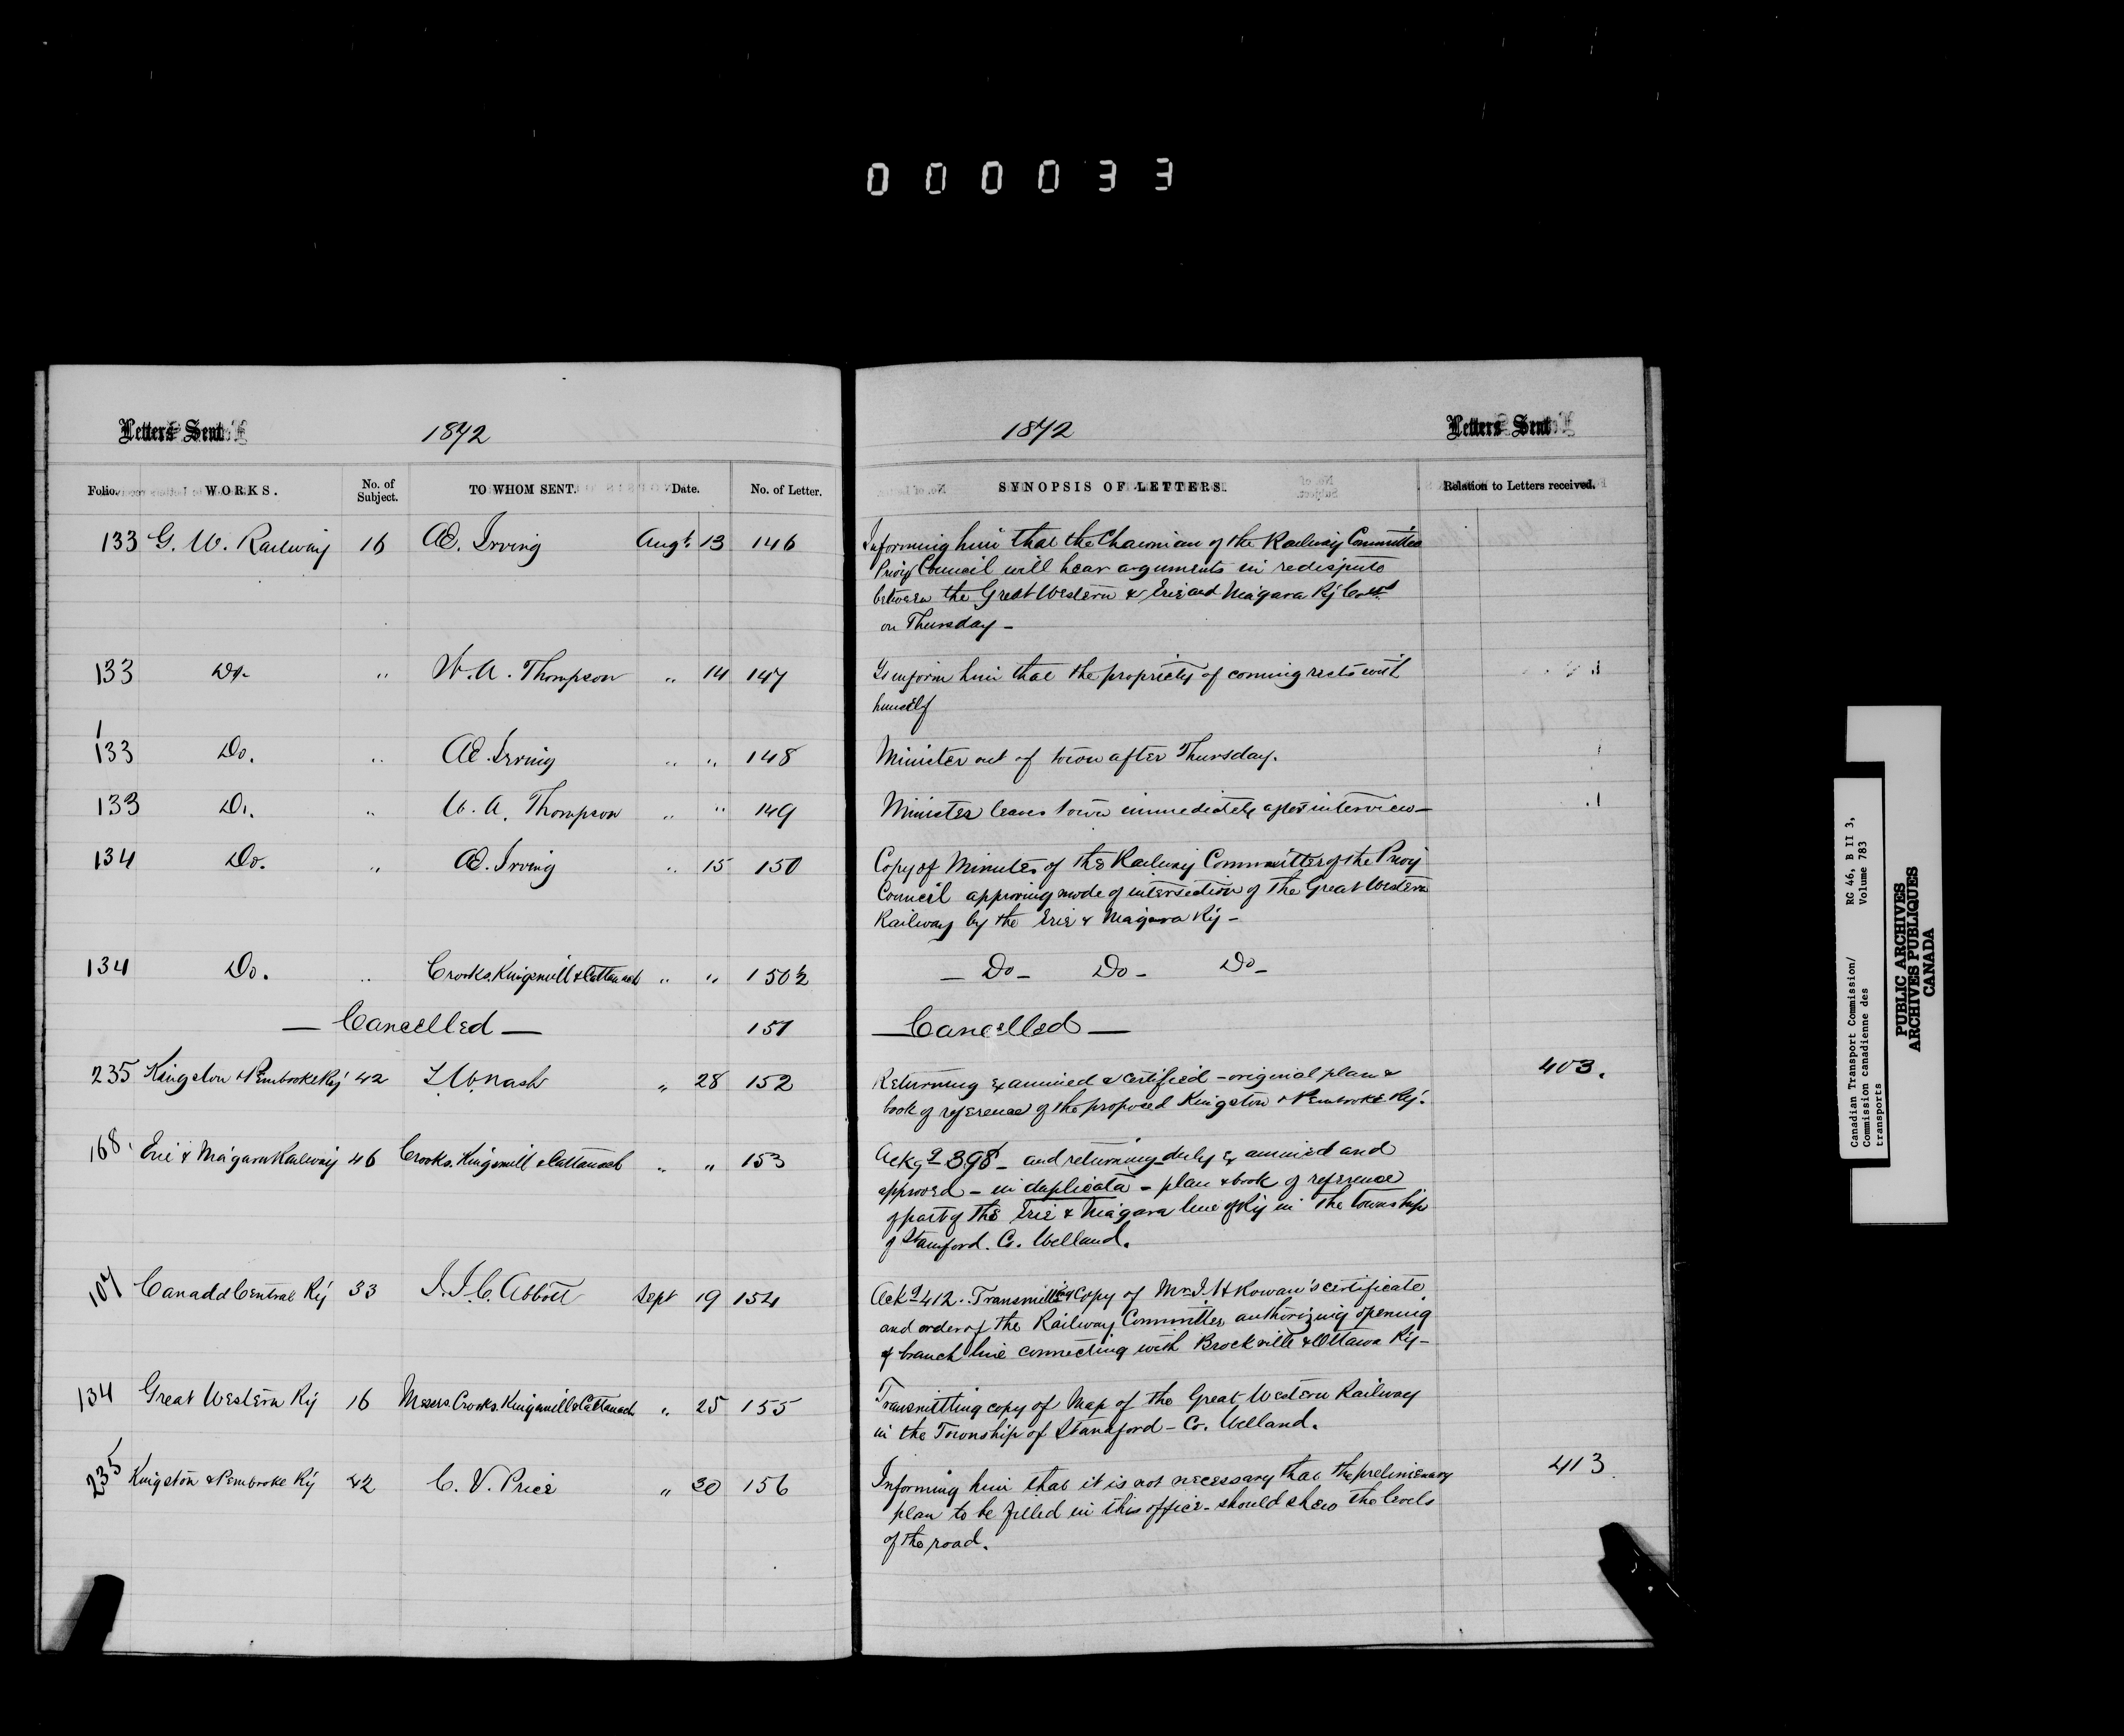 000033
Letters Sent 1872
Folio. WORKS. No. of Subject. TO WHOM SENT. Date. No. of Letter.
133 G. W. Railway 16 Æ. Irving Augt. 13 146
133 Do. " W. A. Thompson " 14 147
133 Do. " Æ. Irving " " 148
133 Do. " W. A. Thompson " " 149
134 Do. " Æ. Irving " 15 150
134 Do. " Crooks, Kingsmill & Cattanach " " 150½
— Cancelled — 151
235 Kingston & Pembroke Ry 42 T. W. Nash " 28 152
168. Erie & Niagara Railway 46 Crooks, Kingsmill & Cattanach " " 153
107 Canada Central Ry 33 J. J. C. Abbott Sept 19 154
134 Great Western Ry 16 Messrs Crooks, Kingsmill & Cattanach " 25 155
235 Kingston & Pembroke Ry 42 C. V. Price " 30 156
1872 Letters Sent
SYNOPSIS OF LETTERS. Relation to Letters received.
Informing him that the Chairman of the Railway Committee
Privy Council will hear arguments in re dispute
between the Great Western & Erie and Niagara Ry Coes
on Thursday —
To inform him that the propriety of coming rests with
himself
Minister out of town after Thursday.
Minister leaves town immediately after interview —
Copy of Minutes of the Railway Committee of the Privy
Council approving mode of intersection of the Great Western
Railway by the Erie & Niagara Ry —
— Do — Do — Do —
— Cancelled —
Returning examined & certified — original plan & 403.
book of reference of the proposed Kingston & Pembroke Ry.
Ackg 398 — and returning duly examined and
approved — in duplicate — plan & book of reference
of part of the Erie & Niagara line of Ry in the Township
of Stamford. Co. Welland.
Ackd 412. Transmitting Copy of Mr. J. H Rowan's certificate
and order of the Railway Committee authorizing opening
of branch line connecting with Brockville & Ottawa Ry —
Transmitting copy of Map of the Great Western Railway
in the Township of Stamford — Co. Welland.
Informing him that it is not necessary that the preliminary 413
plan to be filled in this office — should shew the levels
of the road.
Canadian Transport Commission/ RG 46, B II 3,
Commission canadienne des Volume 783
transports
PUBLIC ARCHIVES
ARCHIVES PUBLIQUES
CANADA